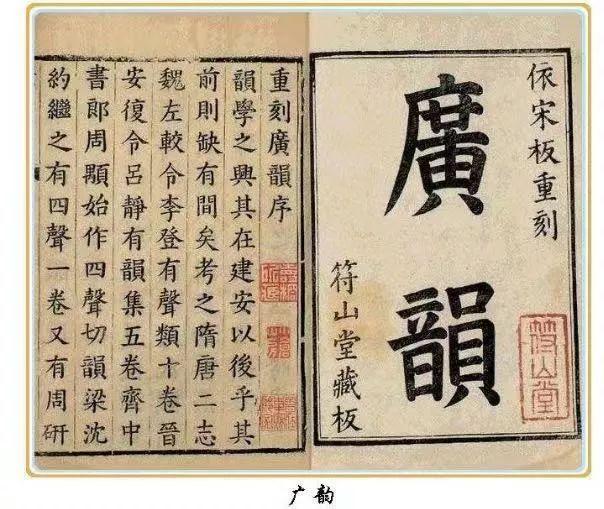 依宋板重刻
廣韻
符山堂藏板
符山堂
重刻廣韻序
韻學之興其在建安以後乎其
前則缺有間矣考之隋唐二志
魏左較令李登有聲類十卷晉
安復令呂靜有韻集五卷齊中
書郎周顒始作四聲切韻梁沈
約繼之有四聲一卷又有周研
广韵